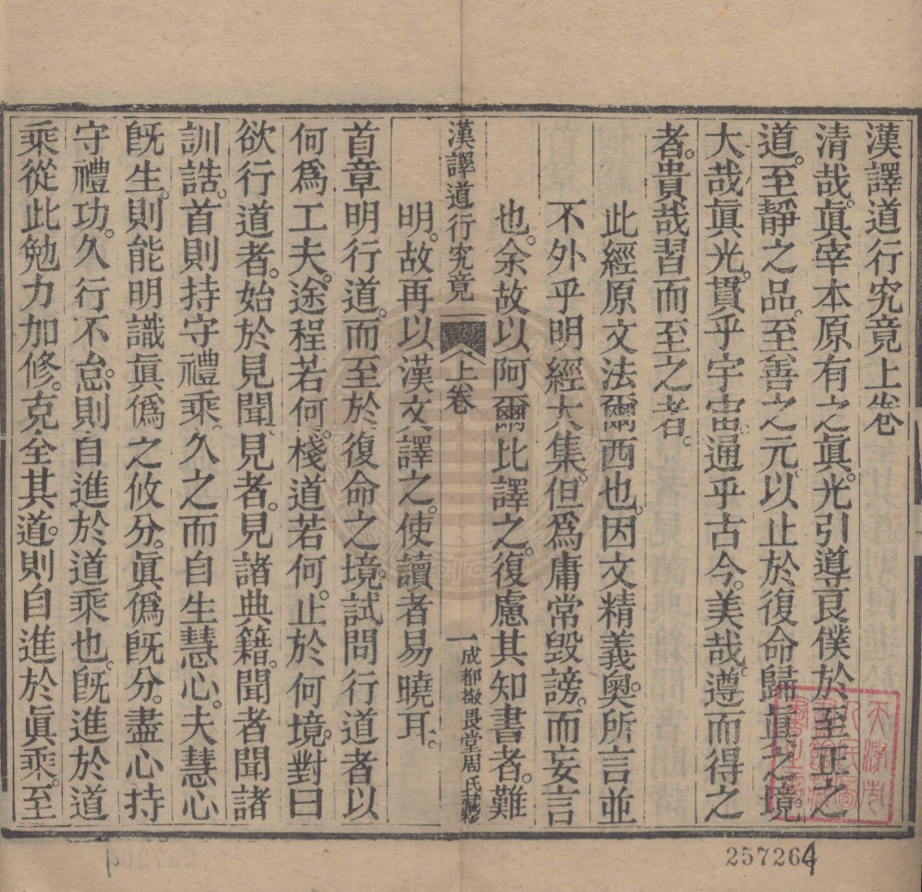 漢譯道行究竟上卷
清哉。眞宰本原有之眞。光引導良僕於至正之
道。至靜之品。至善之元。以止於復命歸眞之境。
大哉眞光。貫乎宇宙。通乎古今。美哉。遵而得之
者。貴哉習而至之者。
此經原文法爾西也。因文精義奧。所言並
不外乎明經大集。但爲庸常毀謗。而妄言
也。余故以阿爾比譯之。復慮其知書者。難
漢譯道行究竟
上卷
一
成都敬畏堂周氏藏
明。故再以漢文譯之。使讀者易曉耳。
首章明行道。而至於復命之境。試問行道者以
何爲工夫。途程若何。棧道若何。止於何境。對曰
欲行道者。始於見聞。見者。見諸典籍。聞者聞諸
訓誥。首則持守禮乘。久之而自生慧心。夫慧心
旣生。則能明識眞僞之攸分。眞僞旣分。盡心持
守禮功。久行不怠。則自進於道乘也。旣進於道
乘。從此勉力加修。克全其道。則自進於眞乘。至
257264